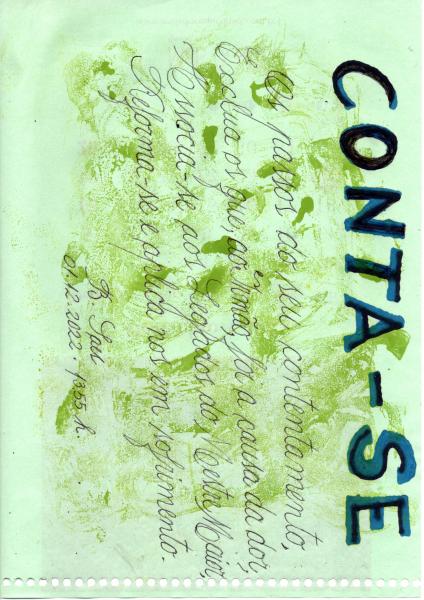 CONTA-SE
Os passos do seu contentamento,
Exclua os que, à Irmão, foi a causa da dor,
Associa-se aos Legados do Mestre Maior,
Reforma-se e aplica nos em sofrimento.
B. Saul
8.12.2022. 1355 h.